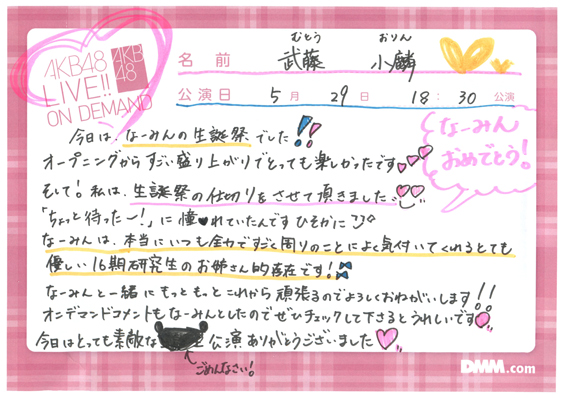 AKB48
LIVE!!
ON DEMAND
AKB
48
名前
むとう おりん
武藤 小麟
公演日 5月 29日 18:30 公演
なーみん
おめでとう!
今日は、なーみんの生誕祭でした!!
オープニングからすごい盛り上がりでとっても楽しかったです
そして!私は、生誕祭の仕切りをさせて頂きました
「ちょっと待ったー!」に憧れていたんですひそかに
なーみんは、本当にいつも全力ですごく周りのことによく気付いてくれるとても
優しい16期研究生のお姉さん的存在です!
なーみんと一緒にもっともっとこれから頑張るのでよろしくおねがいします!!
オンデマンドコメントもなーみんとしたのでぜひチェックして下さるとうれしいです
今日はとっても素敵な 公演ありがとうございました
ごめんなさい!
DMM.com